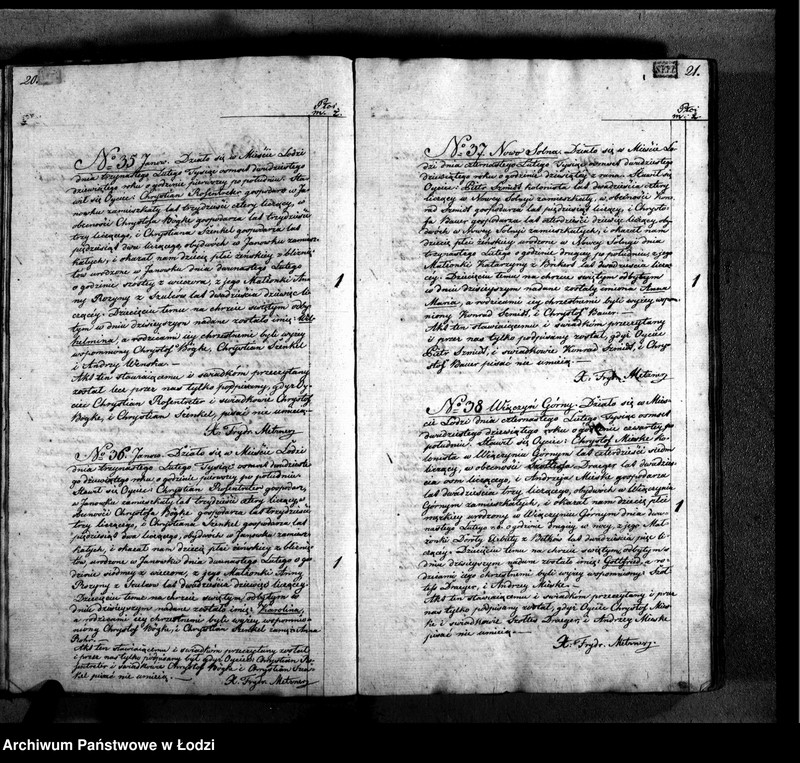 20.
Płci
m. ż.
No 35 Janow. Działo się w Mieście Łodzi
dnia trzynastego Lutego Tysiąc ośmset dwudziestego
dziewiątego roku o godzinie pierwszej po południu. Sta-
wił się Oyciec Chrystian Rosentreter gospodarz w Ja-
nowku zamieszkały lat trzydzieści cztery liczący, w
obecności Chrystofa Böyke gospodarza lat trzydzieści
trzy liczącego, i Chrystiana Szenkel gospodarza lat
piędziesiąt dwa liczącego, obydwoch w Janowku zamiesz-
kałych, i okazał nam dziecię płci żeńskiej z bliznią-
tów urodzone w Janowku dnia dwunastego Lutego
o godzinie szóstej z wieczora, z jego Małżonki An-
ny Rozyny z Szulców lat dwadzieścia dziewięć li-
czącej. Dziecięciu temu na chrzcie świętym odby-
tym w dniu dzisiejszym nadane zostało imię: Wil-
helmina, a rodzicami jej chrzestnemi byli wyżej
wspomniony Chrystof Böyke, Chrystian Szenkel
i Andrzej
Akt ten stawaiącemu i świadkom przeczytany
został lecz przez nas tylko podpisany, gdyż Oy-
ciec Chrystian Rosentreter i świadkowie Chrystof
Böyke, i Chrystian Szenkel, pisać nie umieią.—
X. Frydr. Metzner
1
No 36 Janow. Działo się w Mieście Łodzi
dnia trzynastego Lutego Tysiąc ośmset dwudzieste-
go dziewiątego roku o godzinie pierwszej po południu
Stawił się Oyciec: Chrystian Rosentreter gospodarz
w Janowku zamieszkały lat trzydzieści cztery liczący, w
obecności Chrystofa Böyke gospodarza lat trzydzieści
trzy liczącego, i Chrystiana Szenkel gospodarza lat
pięćdziesiąt dwa liczącego, obydwoch w Janowku zamiesz-
kałych, i okazał nam dziecię płci żeńskiej z bliźnią-
tów urodzone w Janowku dnia dwunastego Lutego o go-
dzinie siódmej z wieczora, z jego Małżonki Anny
Rozyny z Szulców lat dwadzieścia dziewięć liczącej.
Dziecięciu temu na chrzcie świętym odbytym w
dniu dzisiejszym nadane zostało imię Karolina,
a rodzicami jej chrzestnemi byli wyżej wspomnio-
niony Chrystof Böyke, i Chrystian Szenkel Anna
Akt ten stawaiącemu i świadkom przeczytany został
i przez nas tylko podpisany był gdyż Oyciec Chrystian Ro-
sentreter i świadkowie Chrystof Böyke i Chrystian Szen-
kel pisać nie umieią.—
X. Frydr. Metzner
1
21.
Płci
m. ż.
No 37 Nowo Solna. Działo się w Mieście Ło-
dzi dnia czternastego Lutego Tysiąc ośmset dwudziestego
dziewiątego roku o godzinie dziewiątej z rana. Stawił się
Oyciec: Piotr Szmidt kolonista lat dwadzieścia cztery
liczący w Nowej Solnej zamieszkały, w obecności Kon-
rad Szmidt gospodarza lat pięćdziesiąt liczący, i Chrysto-
fa Bauer gospodarza lat czterdzieści dziewięć liczącej, oby-
dwoch w Nowej Solnej zamieszkałych, i okazał nam
dziecię płci żeńskiej urodzone w Nowej Solnej dnia
trzynastego Lutego o godzinie drugiej po południu, z jego
Małżonki Katarzyny z lat dwadzieścia liczą-
cej. Dziecięciu temu na chrzcie świętym odbytym
w dniu dzisiejszym nadane zostały imiona Anna
Maria, a rodzicami jej chrzestnemi byli wyżej wspom-
niony Konrad Szmidt, i Chrystof Bauer.—
Akt ten stawaiącemu i świadkom przeczytany
i przez nas tylko podpisany został, gdyż Oyciec
Piotr Szmidt, i świadkowie Konrad Szmidt, i Chry-
stof Bauer pisać nie umieią.—
X. Frydr. Metzner
1
No 38 Wiączyń Górny. Działo się w Mie-
ście Łodzi dnia czternastego Lutego Tysiąc ośmset
dwudziestego dziewiątego roku o godzinie czwartej po
południu. Stawił się Oyciec: Chrystof Miaske ko-
lonista w Wiączyniu Górnym lat czterdzieści siedm
liczący, w obecności Draeger lat dwadzieś-
cia osm liczącej, i Andrzeja Miaske gospodarza
lat dwadzieścia trzy liczącego, obydwoch w Wiączyniu
Górnym zamieszkałych, i okazał nam dziecię płci
męzkiej urodzone w Wiączyniu Górnym dnia dwu-
nastego Lutego r.b. o godzinie drugiej w nocy, z jego Mał-
żonki Doroty Elzbiety z lat dwadzieścia pięć li-
czącej. Dziecięciu temu na chrzcie świętym odbytym w
dniu dzisiejszym nadane zostało imię: Gottfried, a ro-
dzicami jego chrzestnemi byli wyżej wspomniony
Draeger, i Andrzej Miaske.—
Akt ten stawaiącemu i świadkom przeczytany i przez
nas tylko podpisany został, gdyż Oyciec Chrystof Mias-
ke i świadkowie Draeger, i Andrzej Miaske
pisać nie umieią.—
X. Frydr. Metzner.
1
Archiwum Państwowe w Łodzi